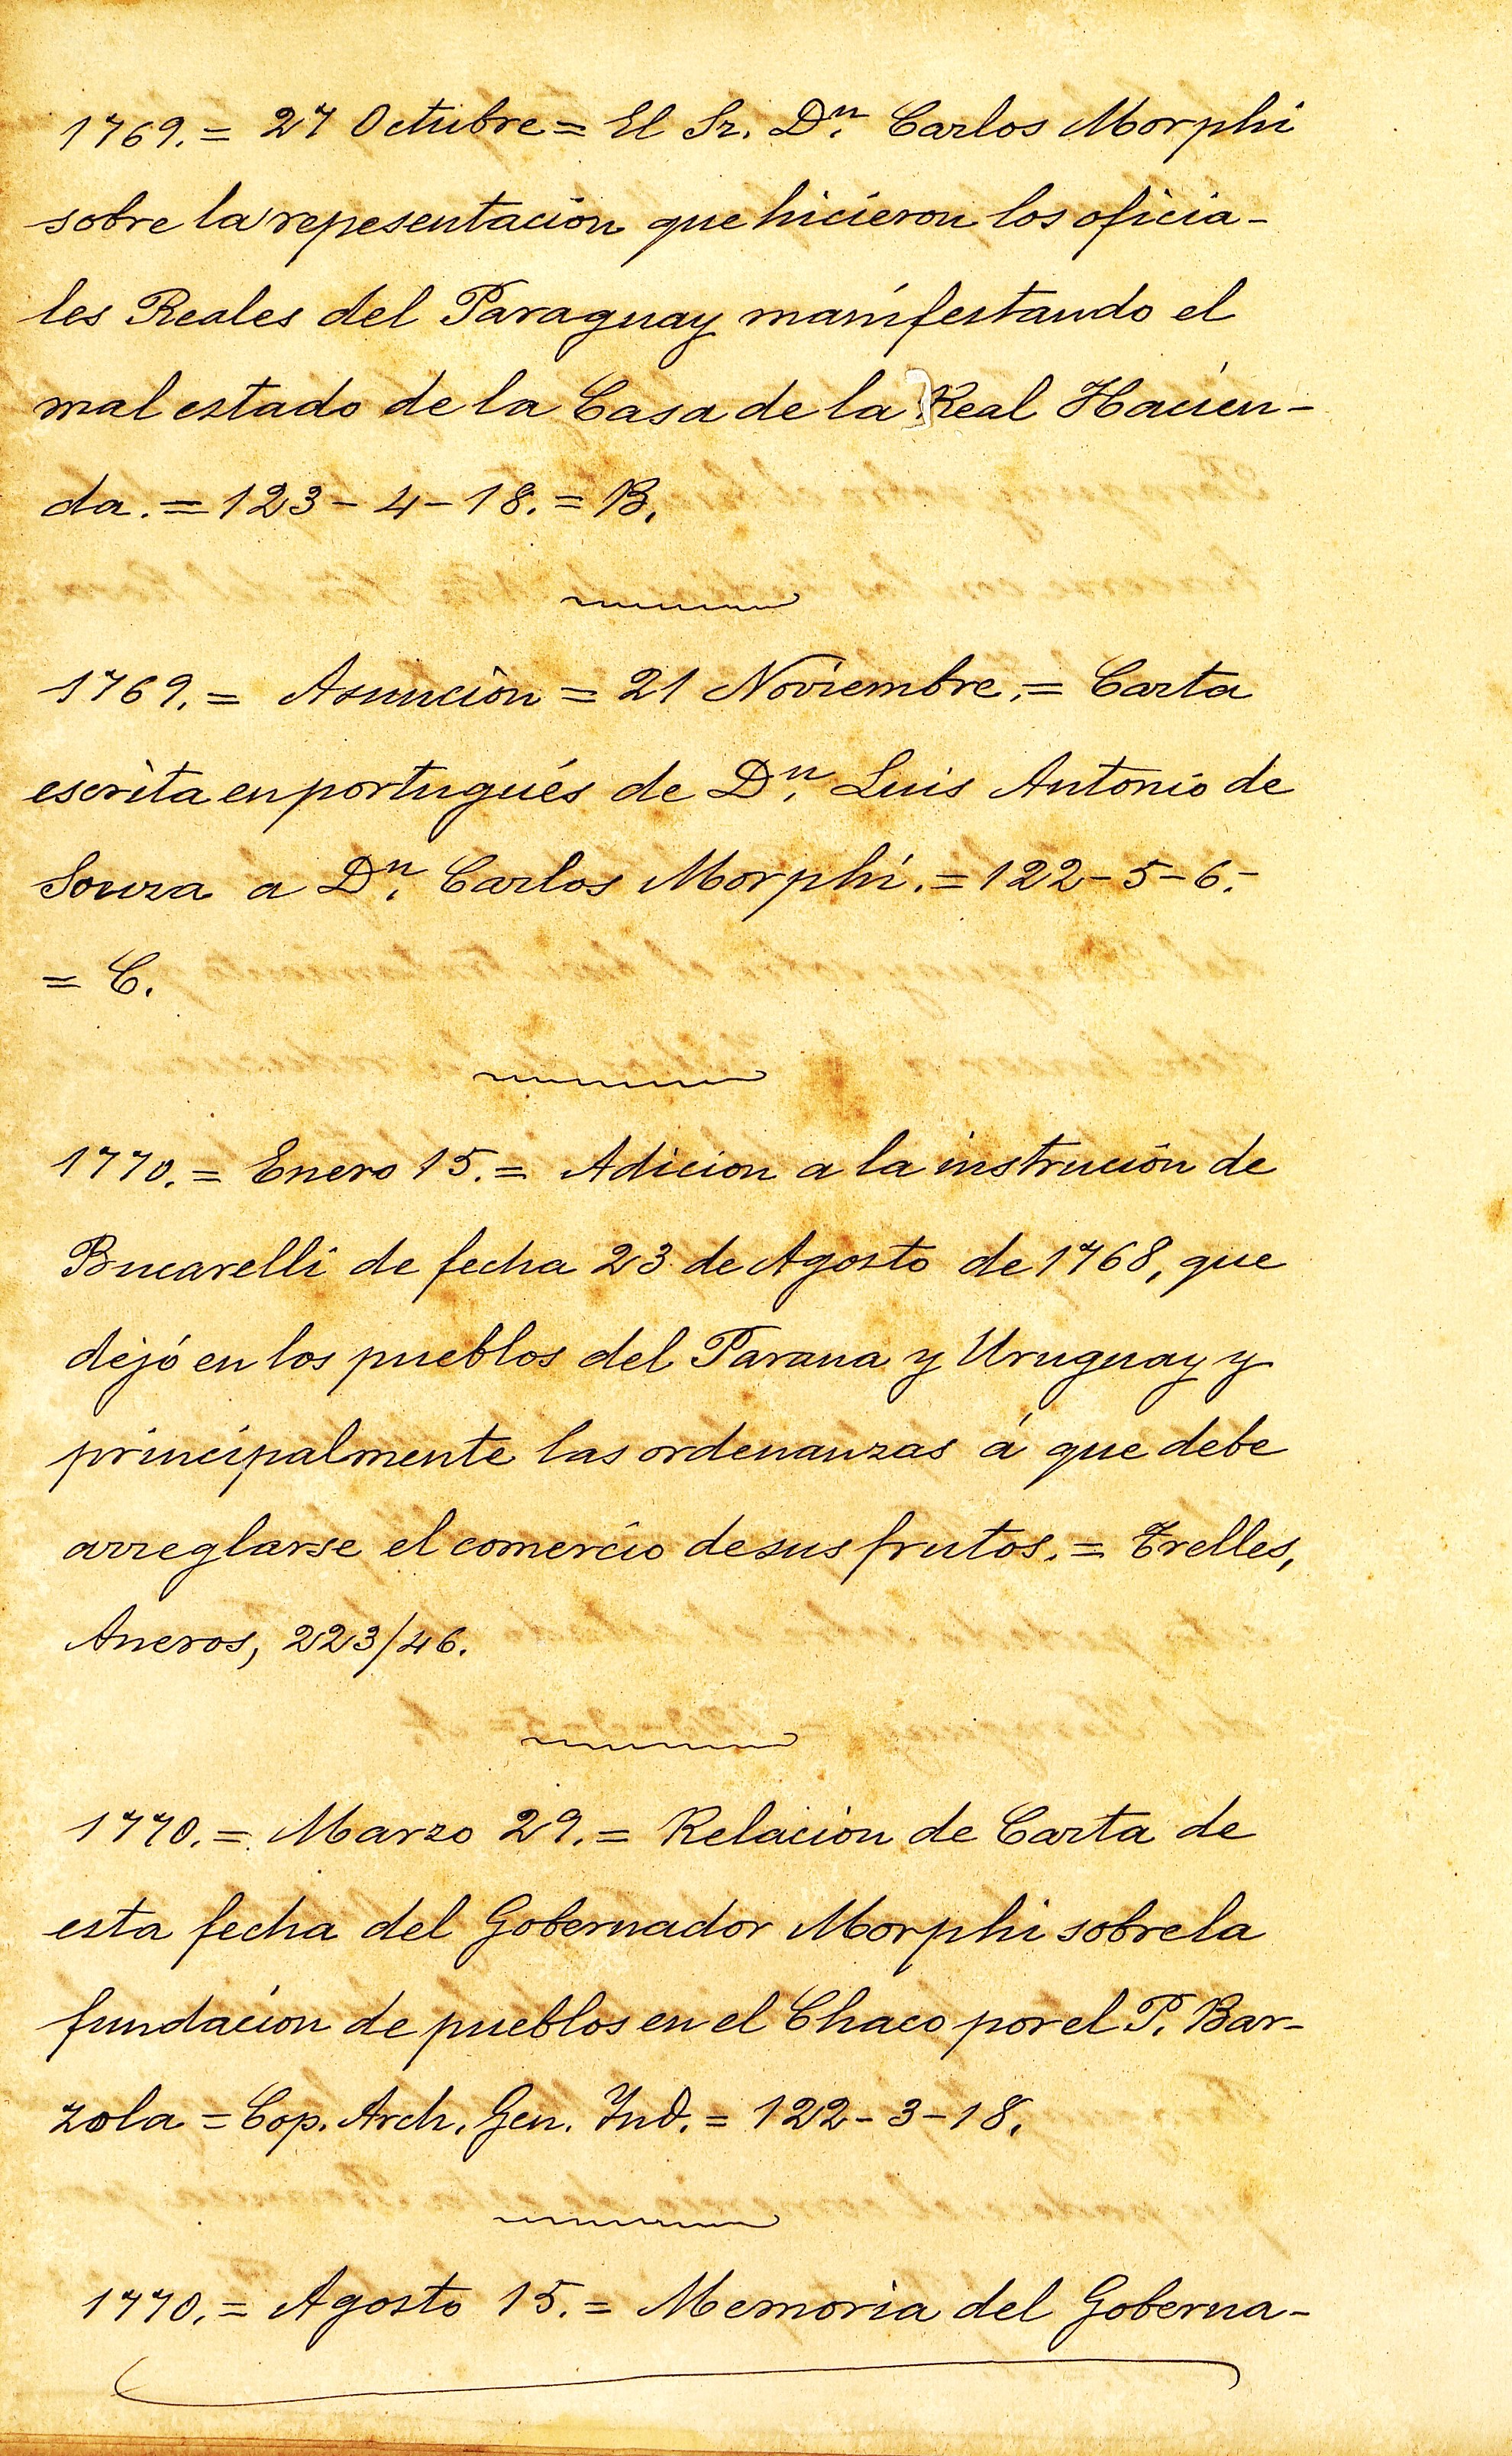 1769.= 27 Octubre = El Sr. Dⁿ. Carlos Morphi
sobre la repesentación que hicieron los oficia-
les Reales del Paraguay manifestando el
mal estado de la Casa de la Real Hacien-
da. = 123 - 4 - 18. = B.
1769. = Asunción = 21 Noviembre. = Carta
escrita en portugués de Dⁿ. Luis Antonio de
Souza a Dⁿ. Carlos Morphi. = 122 - 5 - 6. -
= C.
1770. = Enero 15. = Adicion a la instrución de
Bucarelli de fecha 23 de Agosto de 1768, que
dejó en los pueblos del Parana y Uruguay y
principalmente las ordenanzas á que debe
arreglarse el comercio de sus frutos. = Trelles,
Aneros, 223/46.
1770. = Marzo 29. = Relacion de Carta de
esta fecha del Gobernador Morphi sobre la
fundacion de pueblos en el Chaco por el P. Bar-
zola = Cop. Arch. Gen. Ind. = 122 - 3 - 18.
1770. = Agosto 15. = Memoria del Goberna-